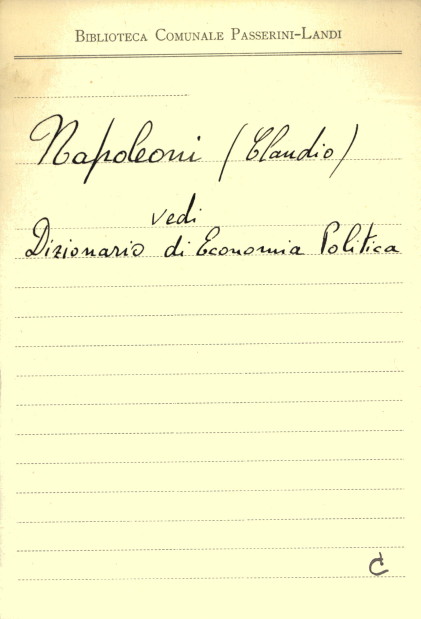 BIBLIOTECA COMUNALE PASSERINI-LANDI
Napoleoni (Claudio)
vedi
Dizionario di Economia Politica
C